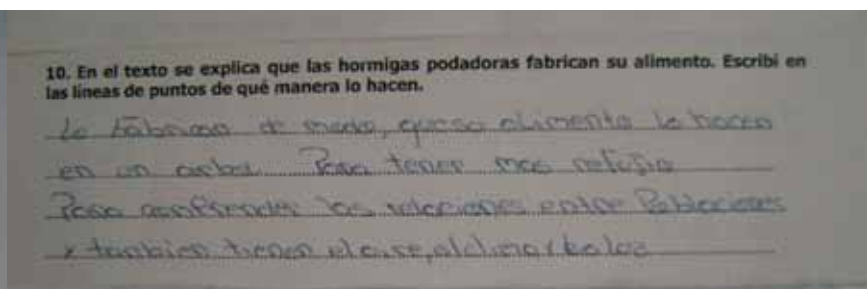 10. En el texto se explica que las hormigas podadoras fabrican su alimento. Escribí en
las líneas de puntos de qué manera lo hacen.
Lo fabrican de modo, que su alimento lo hacen
en un arbol. Para tener mas refugio
Para comprender las relaciones entre Poblaciones
y tambien tienen el aire, el clima y la luz